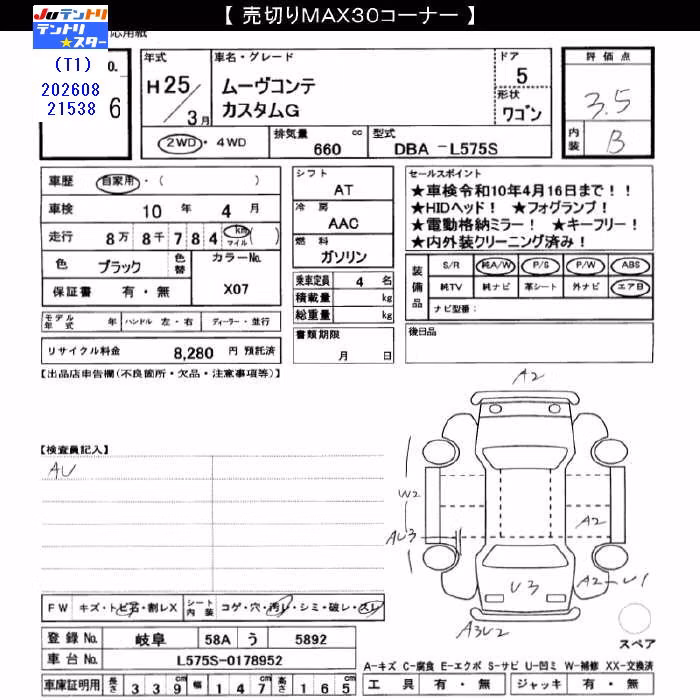 【 売切りMAX30コーナー 】
JUテントリ
テントリ★スター
応用紙
(T1)
202608
21538
o.
6
年式
H25/3月
車名・グレード
ムーヴコンテ
カスタムG
ドア
5
形状
ワゴン
評価点
3.5
内装
B
2WD・4WD
排気量 cc
660
型式
DBA -L575S
車歴 自家用・( )
車検 10 年 4 月
走行 8万 8千 7 8 4 km マイル ( )
色 ブラック 色替
カラーNo.
X07
保証書 有・無
シフト
AT
冷房
AAC
燃料
ガソリン
乗車定員 4 名
積載量 kg
総重量 kg
書類期限
月 日
セールスポイント
★車検令和10年4月16日まで！！
★HIDヘッド！ ★フォグランプ！
★電動格納ミラー！ ★キーフリー！
★内外装クリーニング済み！
装備品
S/R 純A/W P/S P/W ABS
純TV 純ナビ 革シート 外ナビ エアB
ナビ型番：
後日品
モデル年式 年 ハンドル 左・右 ディーラー・並行
リサイクル料金 8,280 円 預託済
【出品店申告欄(不良箇所・欠品・注意事項等)】
【検査員記入】
AU
A2
W2
AU3
A2
U3
A2-U1
A3U2
スペア
FW キズ・トビ石・割レX
シート内装 コゲ・穴・汚レ・シミ・破レ・スレ
登録No. 岐阜 58A う 5892
車台No. L575S-0178952
車庫証明用 長さ 3 3 9 幅 1 4 7 高さ 1 6 5
A-キズ C-腐食 E-エクボ S-サビ U-凹ミ W-補修 XX-交換済
工具 有・無 ジャッキ 有・無